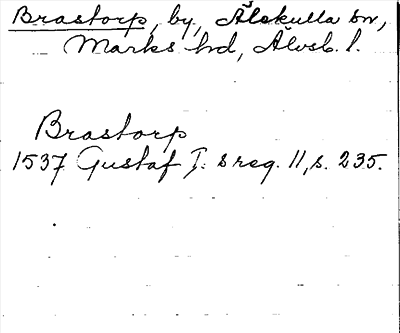 Brastorp, by, Älekulla sn,
Marks hd, Älvsb. l.
Brastorp
1537 Gustaf I:s reg. 11, s. 235.